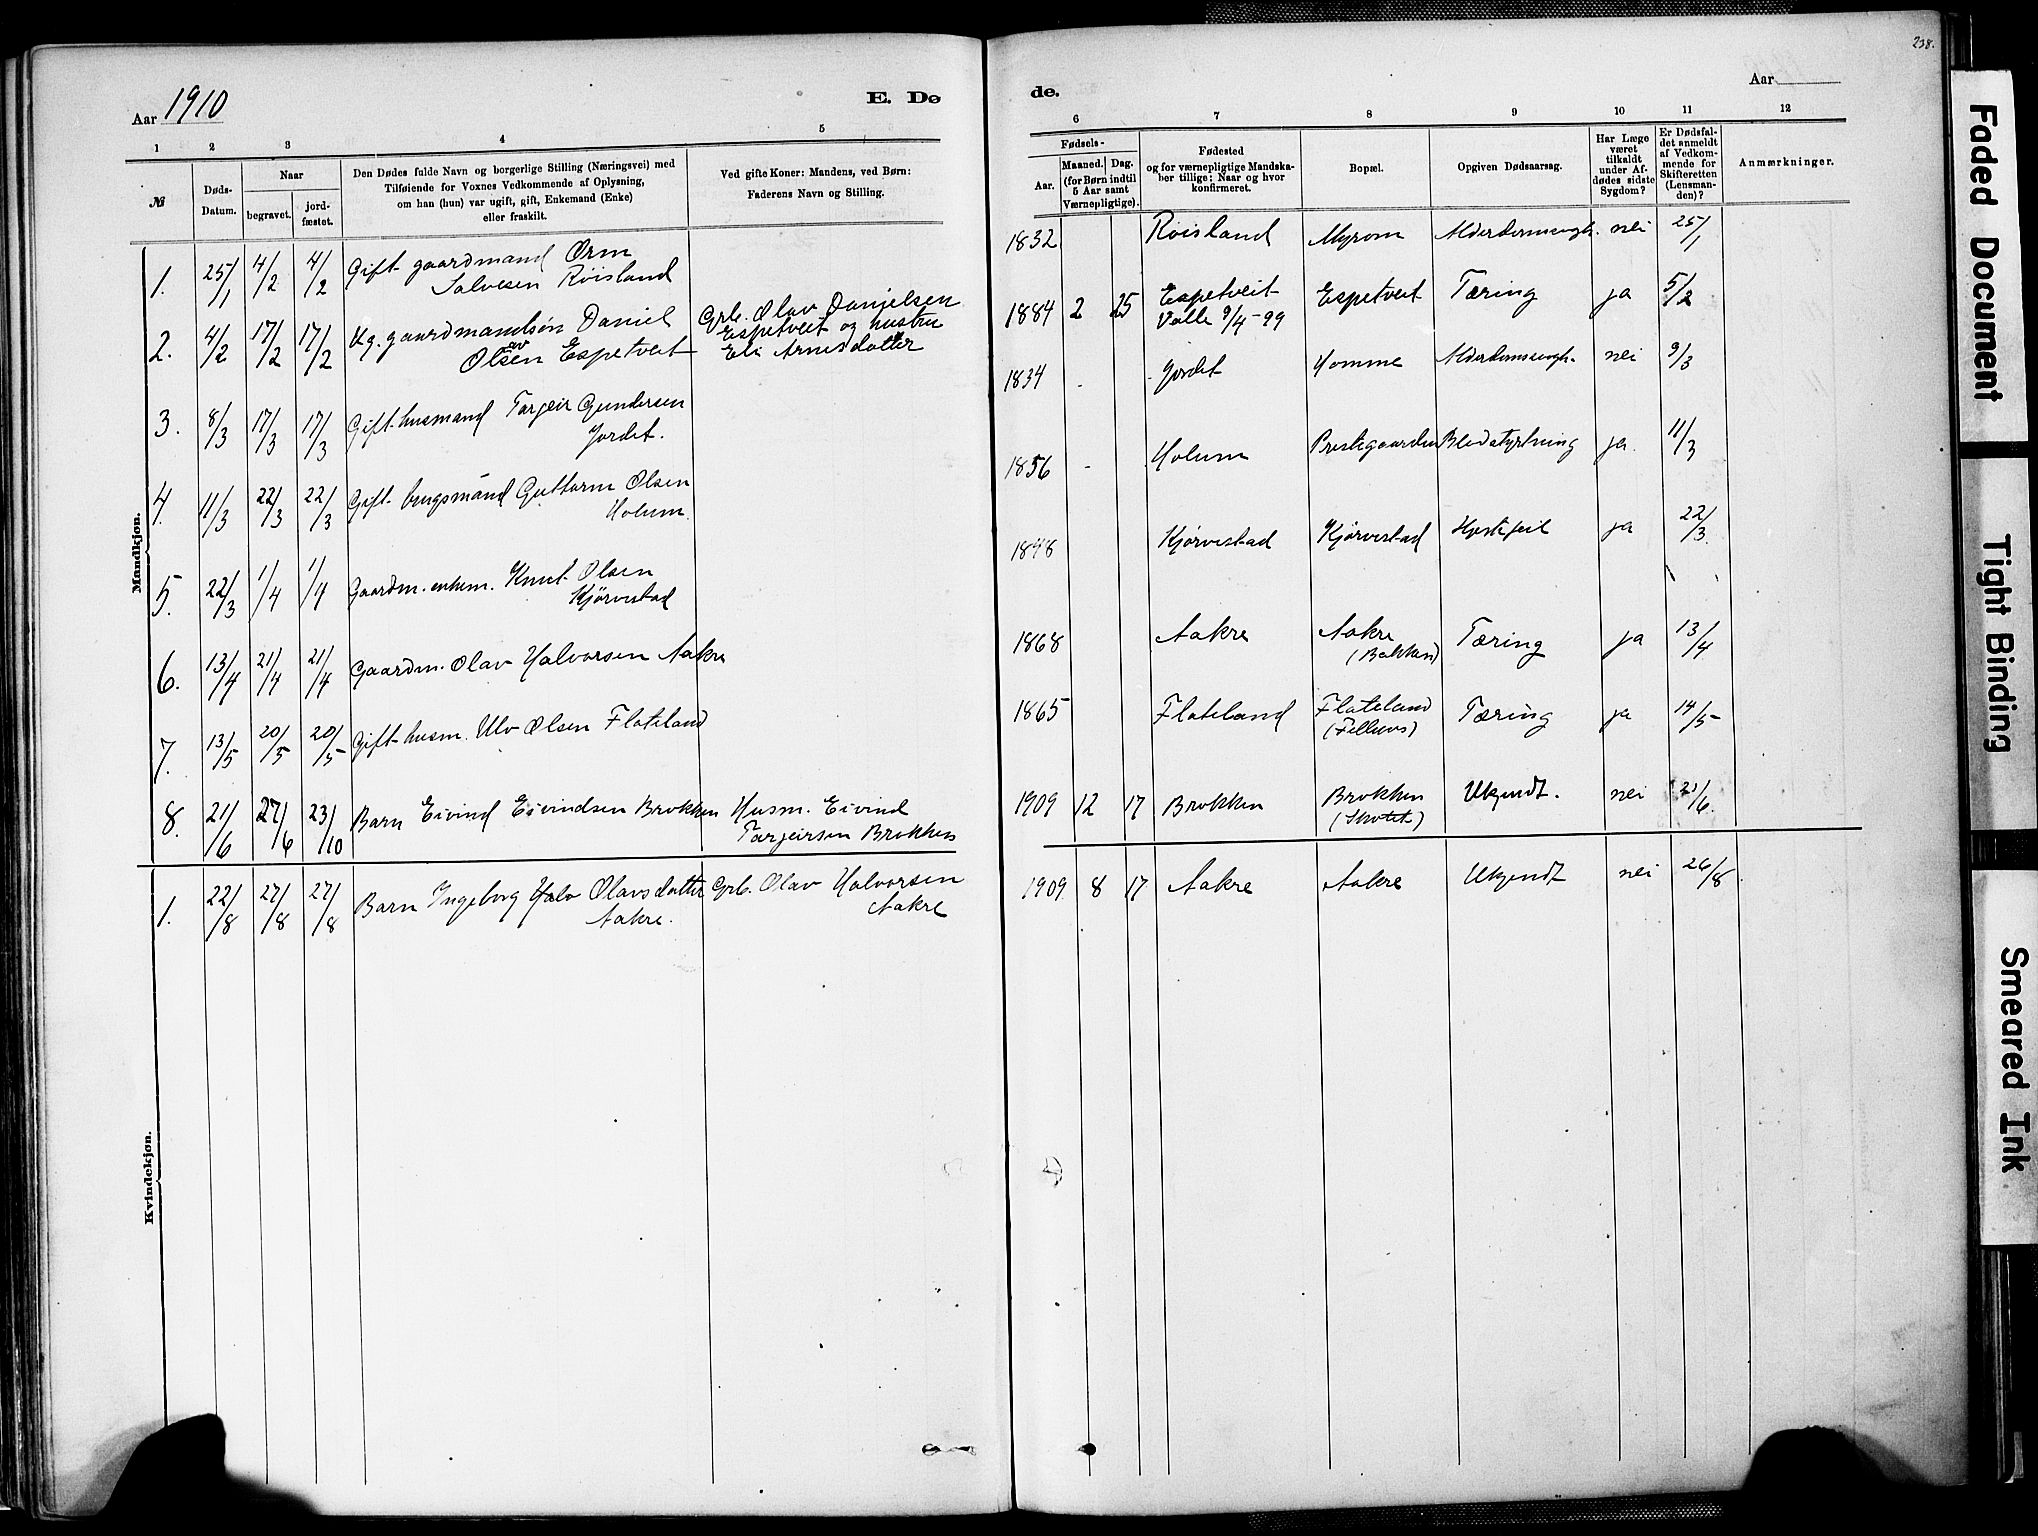 238.
Aar 1910
E. Dø
de.
Aar
1 2 3 4 5
6 7 8 9 10 11 12
№
Døds-Datum.
Naar
begravet.
jord-fæstet.
Den Dødes fulde Navn og borgerlige Stilling (Næringsvei) med
Tilføiende for Voxnes Vedkommende af Oplysning,
om han (hun) var ugift, gift, Enkemand (Enke)
eller fraskilt.
Ved gifte Koner: Mandens, ved Børn:
Faderens Navn og Stilling.
Fødsels-
Aar.
Maaned. Dag.
(for Børn indtil
5 Aar samt
Værnepligtige).
Fødested
og for værnepligtige Mandska-
ber tillige: Naar og hvor
konfirmeret.
Bopæl.
Opgiven Dødsaarsag.
Har Læge
været
tilkaldt
under Af-
dødes sidste
Sygdom?
Er Dødsfal-
det anmeldt
af Vedkom-
mende for
Skifteretten
(Lensman-
den)?
Anmærkninger.
Mandkjøn.
1. 25/1 4/2 4/2 Gift gaardmand Orm
Salvesen Röisland
1832 Röisland Myrom nei 25/1
2. 4/2 17/2 17/2 Ug. gaardmandsön Daniel
Olsen Espetveit
Grb. Olav Danjelsen
Espetveit og hustru
Eli Arnesdotter
1884 2 25 Espetveit
Valle 9/4-99
Espetveit Tæring ja 5/2
3. 8/3 17/3 17/3 Gift husmand Targeir Gundersen
Jordet.
1834 Jordet Homme nei 9/3
4. 11/3 22/3 22/3 Gift brugsmand Guttorm Olsen
Holum
1856 Holum Prestegaarden Blodstyrtning ja 11/3
5. 22/3 1/4 1/4 Gaardm. enkem. Knut Olsen
Kjörvestad
1848 Kjörvestad Kjörvestad Hjertefeil ja 22/3
6. 13/4 21/4 21/4 Gaardm. Olav Halvorsen Aakre
1868 Aakre Aakre
(Bakken)
Tæring ja 13/4
7. 13/5 20/5 20/5 Gift husm. Ulv Olsen Flateland
1865 Flateland Flateland
Tæring ja 14/5
8. 21/6 27/6 23/10 Barn Eivind Eivindsen Brokken
Husm. Eivind
Targeirsen Brokken
1909 12 17 Brokken Brokken
Ukjendt. nei 21/6
Kvindekjøn.
1. 22/8 27/8 27/8 Barn Ingeborg Olavsdatter
Aakre.
Grb. Olav Halvorsen
Aakre
1909 8 17 Aakre Aakre Ukjendt nei 26/8
Faded Document
Tight Binding
Smeared Ink